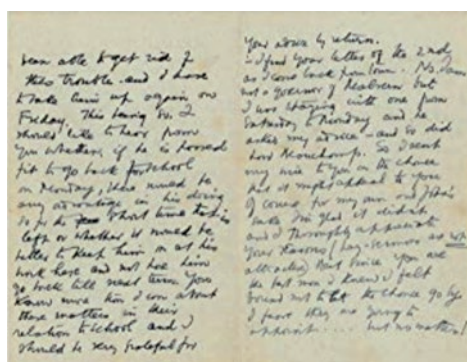 been able to get rid of
this trouble and I have
to take him up again on
Friday. This being so I
should like to hear from
you whether, if he is passed
fit to go back to school
on Monday, there would be
any advantage in his doing
so for the short time that is
left or whether it would be
better to keep him on at his
work here and not have him
go back till next term. You
know more than I can about
these matters in their
relation to school and I
should be very grateful for
your advice by return.
I find your letter of the 2nd
as I come back from town. No, I am
not a governor of Malvern but
I was staying with one from
Saturday to Monday and he
asked my advice – and so did
Lord Beauchamp. So I sent
my line to you on the chance
that it might appeal to you
of course for my own and John's
sake I'm glad it didn't
and I thoroughly appreciate
your reasons (lay-sermons are not
attractive) But since you are
the best man I know I felt
bound not to let the chance go by
I fear they are going to
appoint .... but no matter!